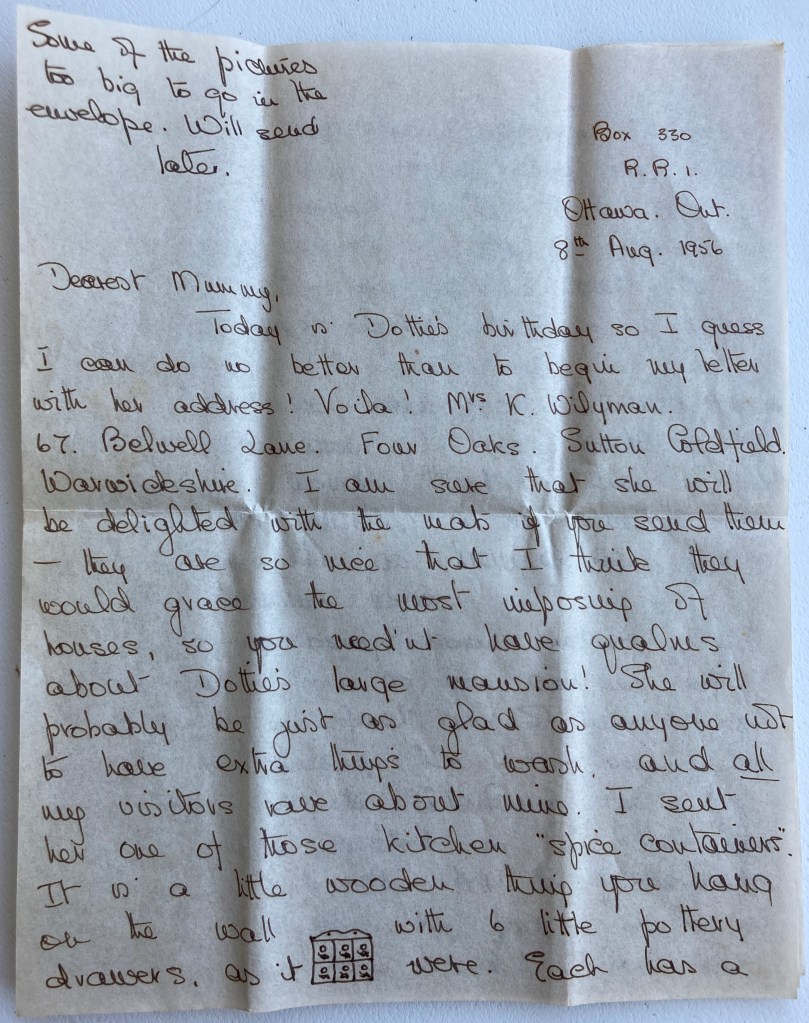 Some of the pictures
too big to go in the
envelope. Will send
later.
Box 330
R.R.1.
Ottawa. Ont.
8th Aug. 1956
Dearest Mummy,
Today is Dottie's birthday so I guess
I can do no better than to begin my letter
with her address! Voila! Mrs K. Wilyman.
67. Belwell Lane. Four Oaks. Sutton Coldfield.
Warwickshire. I am sure that she will
be delighted with the mats if you send them
— they are so nice that I think they
would grace the most imposing of
houses, so you need'nt have qualms
about Dottie's large mansion! She will
probably be just as glad as anyone not
to have extra things to wash, and all
my visitors rave about mine. I sent
her one of those kitchen "spice containers".
It is a little wooden thing you hang
on the wall with 6 little pottery
drawers, as it were. Each has a